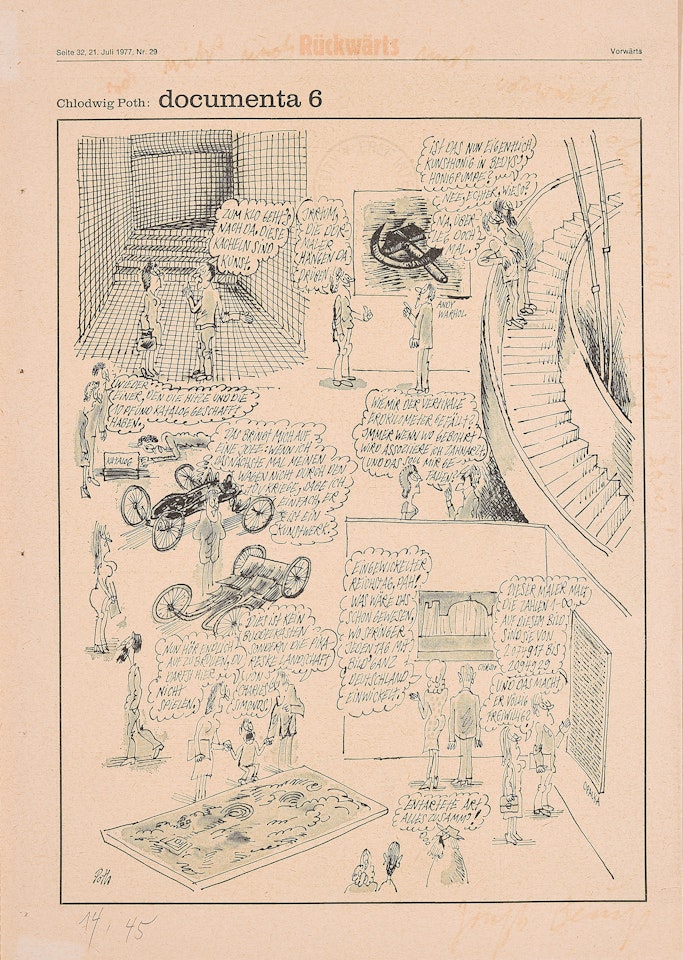 Seite 32, 21. Juli 1977, Nr. 29
Rückwärts
Vorwärts
Chlodwig Poth: documenta 6
ZUM KLO GEHT'S
NACH DA. DIESE
KACHELN SIND
KUNST.
IRRTUM,
DIE DDR
MALER
HÄNGEN DA
DRÜBEN
ANDY
WARHOL
IST DAS NUN EIGENTLICH
KUNSTHONIG IN BEUYS'
HONIGPUMPE?
NEE, ECHTER, WIESO?
NA, ÜBER-
LEG DOCH
MAL.
WIEDER
EINER, DEN DIE HITZE UND DIE
10 PFUND KATALOG GESCHAFFT
HABEN.
KATALOG
DAS BRINGT MICH AUF
EINE IDEE: WENN ICH
DAS NÄCHSTE MAL MEINEN
WAGEN NICHT DURCH DEN
TÜV KRIEGE, SAGE ICH
EINFACH, ER
IST EIN
KUNSTWERK.
WIE MIR DER VERTIKALE
ERDKILOMETER GEFÄLLT?
IMMER WENN WO GEBOHRT
WIRD ASSOZIIERE ICH ZAHNARZT
UND DAS TUT MIR GE-
RADE N!
NUN HÖR ENDLICH
AUF ZU BRÜLLEN, DU
DARFST HIER
NICHT
SPIELEN.
DIES IST KEIN
BUDDELKASTEN
SONDERN DIE
LANDSCHAFT
VON
CHARLES
SIMONDS.
EINGEWICKELTER
REICHSTAG, PAH!
WAS WÄRE DAS
SCHON GEWESEN,
WO SPRINGER
JEDEN TAG MIT
BILD GANZ
DEUTSCHLAND
EINWICKELT.
CHRISTO
DIESER MALER MALT
DIE ZAHLEN 1-∞
AUF DIESEM BILD
SIND SIE VON
2074917 BIS
2094929
UND DAS MACHT
ER VÖLLIG
FREIWILLIG?
OPALKA
ENTARTETE ART
ALLES ZUSAMM'!
Poth
14, 45